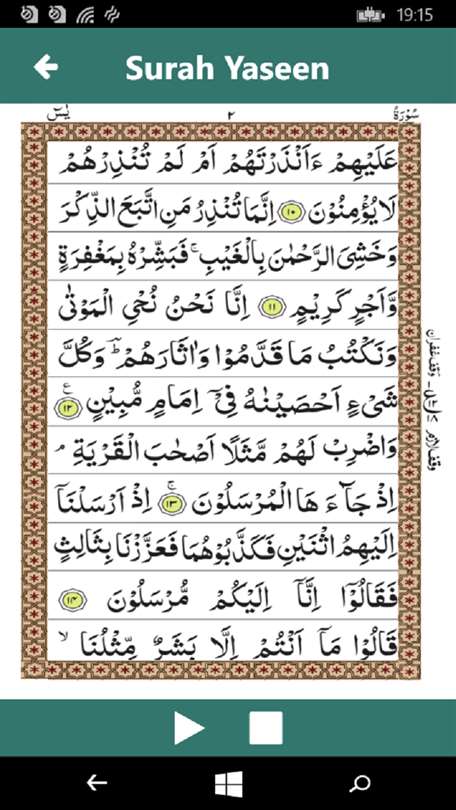 19:15
Surah Yaseen
سُوْرَةُ ٢ يٰسٓ
عَلَيْهِمْ ءَاَنْذَرْتَهُمْ اَمْ لَمْ تُنْذِرْهُمْ
لَا يُؤْمِنُوْنَ ١٠ اِنَّمَا تُنْذِرُ مَنِ اتَّبَعَ الذِّكْرَ
وَخَشِيَ الرَّحْمٰنَ بِالْغَيْبِ ۚ فَبَشِّرْهُ بِمَغْفِرَةٍ
وَّاَجْرٍ كَرِيْمٍ ١١ اِنَّا نَحْنُ نُحْيِ الْمَوْتٰى
وَنَكْتُبُ مَا قَدَّمُوْا وَاٰثَارَهُمْ ؕ وَكُلَّ
شَيْءٍ اَحْصَيْنٰهُ فِيْٓ اِمَامٍ مُّبِيْنٍ ١٢
وَاضْرِبْ لَهُمْ مَّثَلًا اَصْحٰبَ الْقَرْيَةِ ۘ
اِذْ جَآءَهَا الْمُرْسَلُوْنَ ١٣ اِذْ اَرْسَلْنَآ
اِلَيْهِمُ اثْنَيْنِ فَكَذَّبُوْهُمَا فَعَزَّزْنَا بِثَالِثٍ
فَقَالُوْٓا اِنَّآ اِلَيْكُمْ مُّرْسَلُوْنَ ١٤
قَالُوْا مَآ اَنْتُمْ اِلَّا بَشَرٌ مِّثْلُنَا ۙ
وقف غفران
وقف لازم